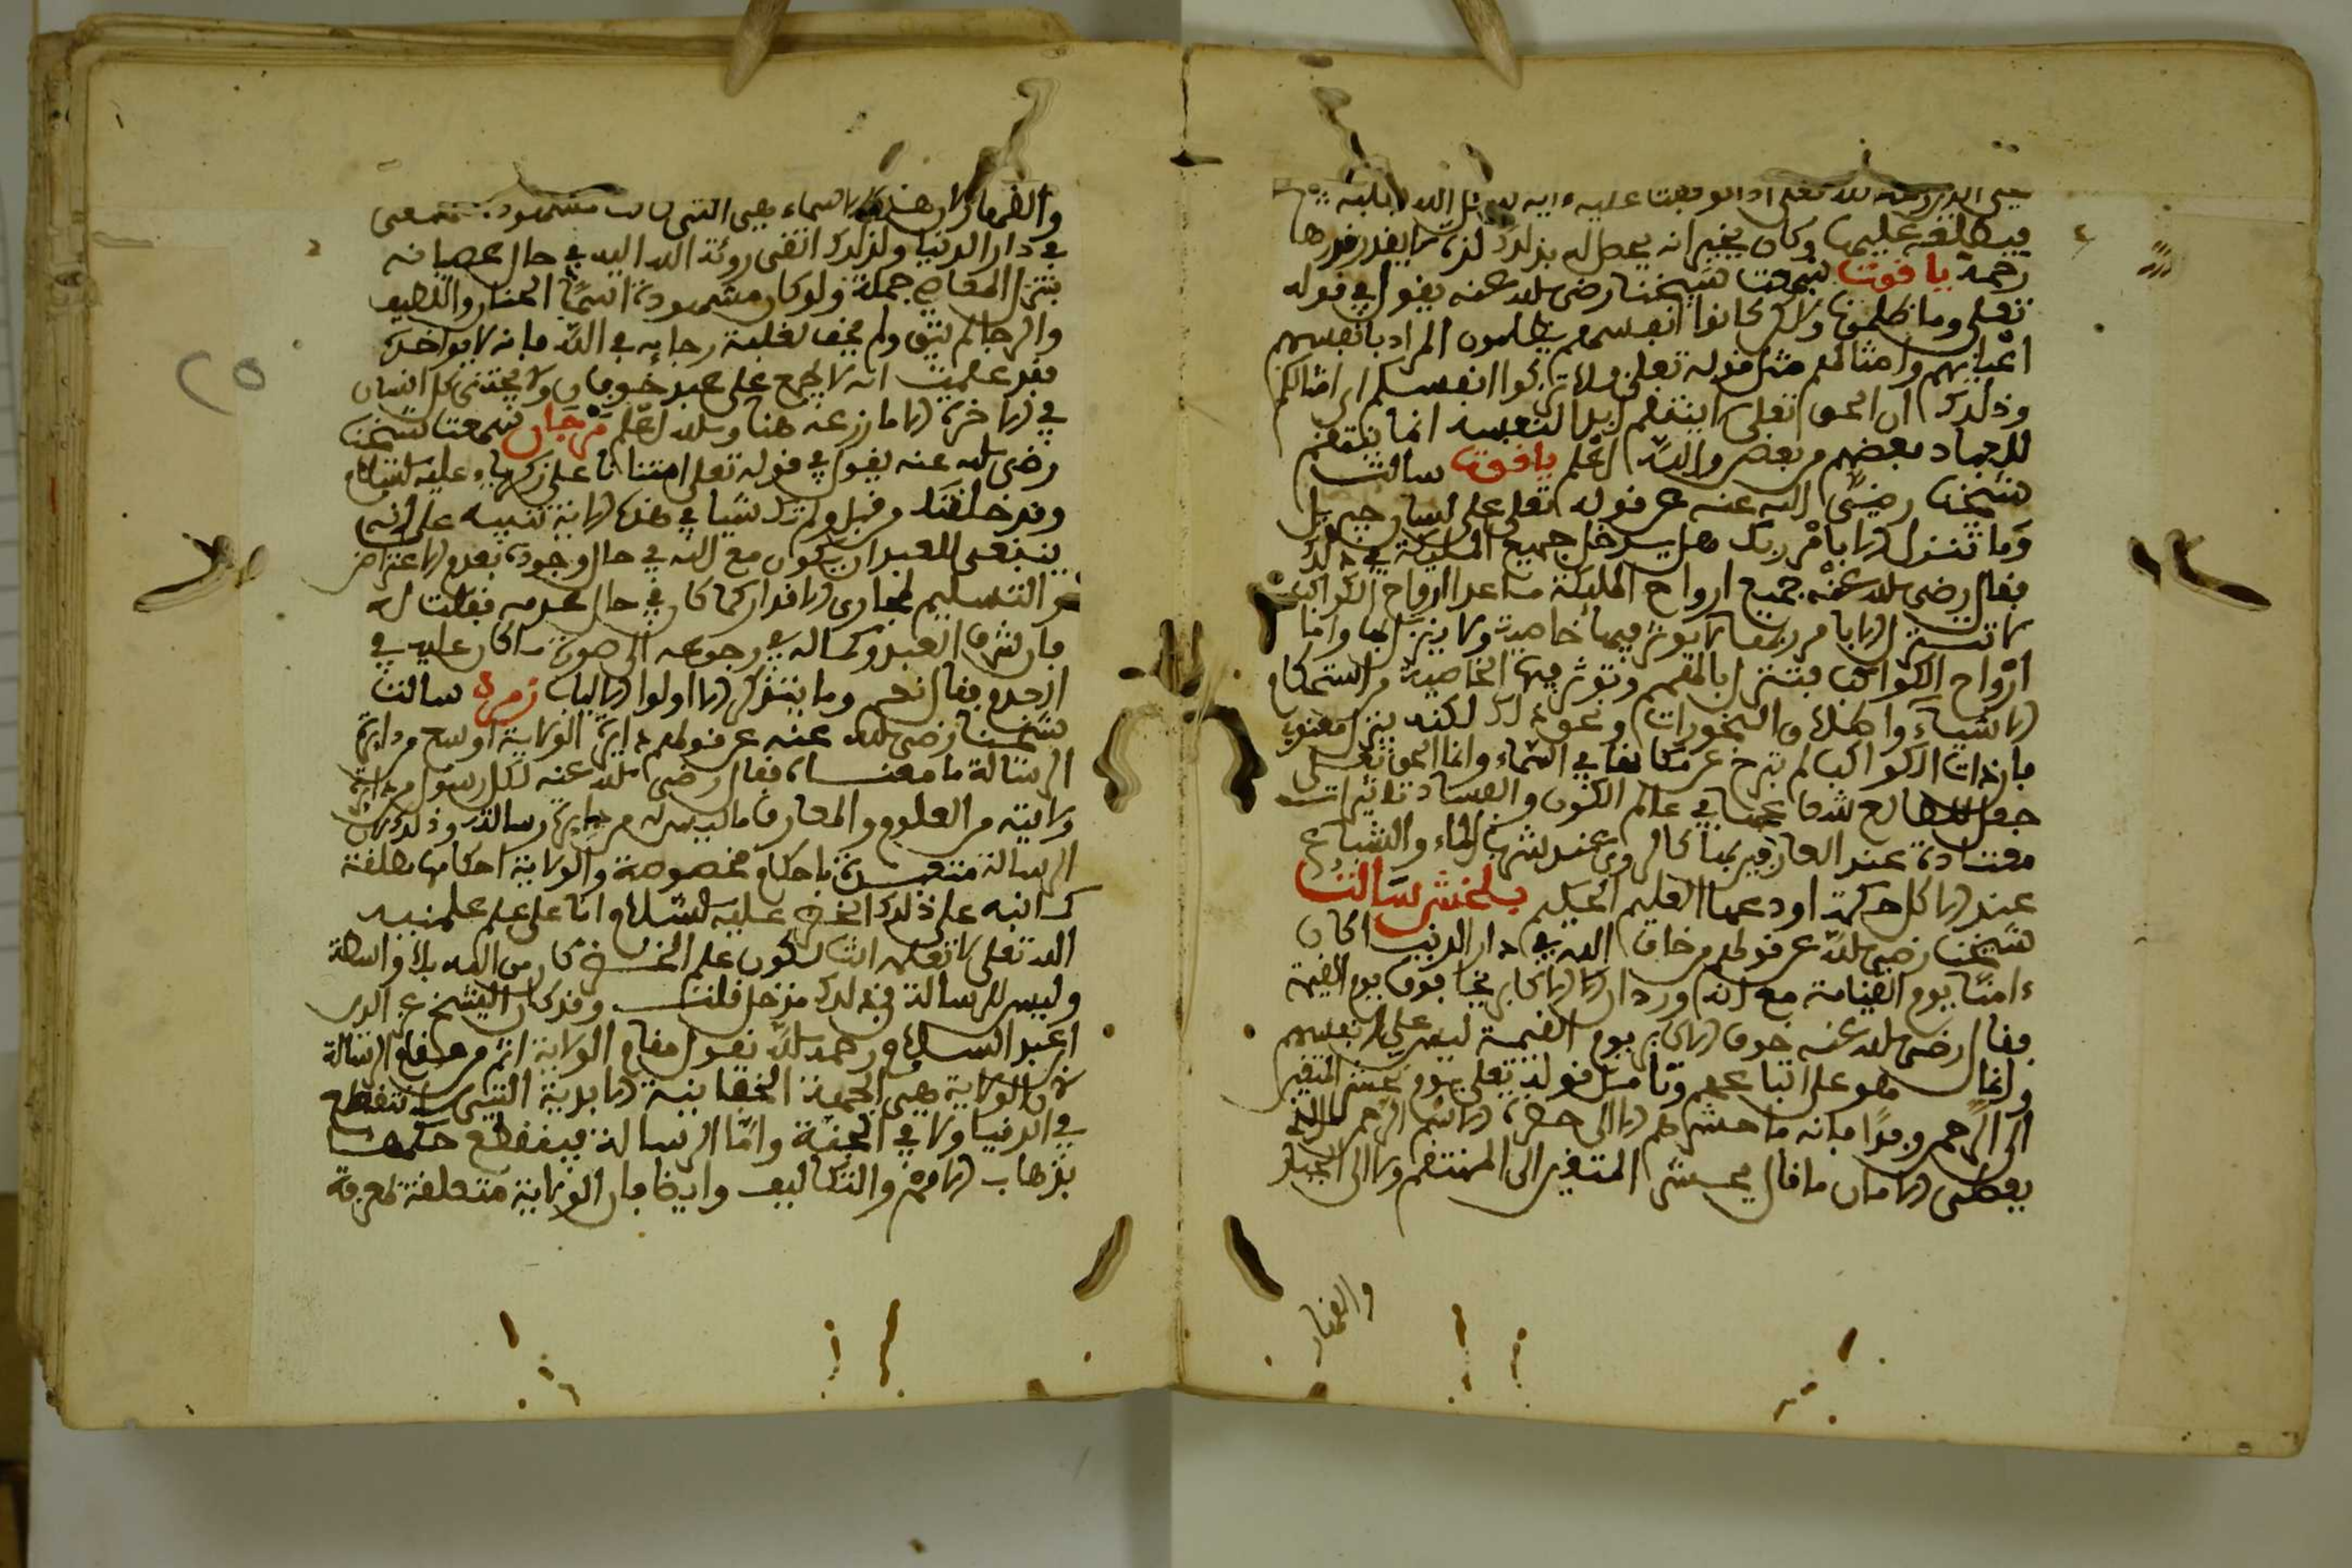 فيطلقه عليها وكان يخبر انه يحصل له بذلك لذة لا يقدر قدرها
رحمة ياقوت سمعت شيخنا رضي الله عنه يقول في قوله
تعلى وما ظلمونا ولاكن كانوا انفسهم يظلمون المراد بانفسهم
اعيانهم وامثالهم مثل قوله تعلى فلا تزكوا انفسكم اي امثالكم
وذلك ان الحق تعلى لا ينتقم ابدا لنفسه انما ينتقم
للعباد بعضهم من بعض والله اعلم ياقوت سالت
شيخنا رضي الله عنه عن قوله تعلى على لسان جبريل
وما نتنزل الا بامر ربك هل يدخل جميع المليكة في ذلك
فقال رضي الله عنه جميع ارواح المليكة ما عدا ارواح الكواكب
لا تتنزل الا بامر ربها لا يوثر فيها خاصية ولا ينزل بها واما
ارواح الكواكب فتتنزل بالقسم وتوثر فيها الخاصية من استحكام
الاشياء واطلاق البخورات ونحو ذلك لكنه تنزل معنوي
فان ذات الكواكب لم تبرح عن مكانها في السماء وانما الحق تعلى
جعل لمطارح شعاعها في عالم الكون والفساد تاثيرات
معتادة عند العارفين بها كالري عند شرب الماء والشبع
عند الاكل حكمة اودعها العليم الحكيم بلخش سالت
شيخنا رضي الله عن قولهم من خاف الله في دار الدنيا كان
ءامنا يوم القيامة مع انه ورد ان الاكابر يخافون يوم القيمة
فقال رضي الله عنه خوف الاكابر يوم القيمة ليس على انفسهم
وانما هو على اتباعهم وتامل قوله تعلى يوم نحشر المتقين
الى الرحمن وفدا فانه ما حشرهم الا الى حضرة الاسم الرحمن الذي
يعطي الامان ما قال يحشر المتقين الى المنتقم ولا الى الجبار
والقهار
والقهار لان هذه الاسماء هي التي كانت مشهودة
في دار الدنيا ولذلك اتقى روئة الله اليه في حال عصيانه
بترك المعاصي جملة ولو كان مشهوده اسما الحنان واللطيف
والرجا لم يتق ولم يخف لغلبة رجايه في الله بانه لا يواخذه
فقد علمت انه لا يجمع على عبد خوفان ولا يجتني كل انسان
في الاخرة الا ما زرعه هنا والله اعلم مرجان سمعت شيخنا
رضي الله عنه يقول في قوله تعلى امتنانا على زكريا عليه السلام
وقد خلقتك من قبل ولم تك شيا في هذه الاية تنبيه على انه
ينبغي للعبد ان يكون مع الله في حال وجوده بعدم الاعتراض
والتسليم لمجاري الاقدار كما كان في حال عدمه فقلت له
فان شرف العبد وكماله في رجوعه الى صورة ما كان عليه في
العدم فقال نعم وما يتذكر الا اولوا الالباب زمرد سالت
شيخنا رضي الله عنه عن قولهم دايرة الولاية اوسع من دايرة
الرسالة ما معناه فقال رضي الله عنه لكل رسول من دايرة
ولايته من العلوم والمعارف ما ليس له من دايرة رسالته وذلك لان
الرسالة متعينة باحكام مخصوصة والولاية احكامها مطلقة
كما نبه على ذلك الخضر عليه السلام انا على علم علمنيه
الله تعلى لا تعلمه انت لكون علم الخضر كان من الله بلا واسطة
وليس للرسالة في ذلك مدخل قلت وقد كان الشيخ عز الدين
ابن عبد السلام رحمه الله يقول مقام الولاية اتم من مقام الرسالة
لان الولاية هي الجهة الحقانية الابدية التي لا تنقطع
في الدنيا ولا في الجنة واما الرسالة فينقطع حكمها
بذهاب الامة والتكاليف وايضا فان الولاية متعلقة بمعرفة
٢٥